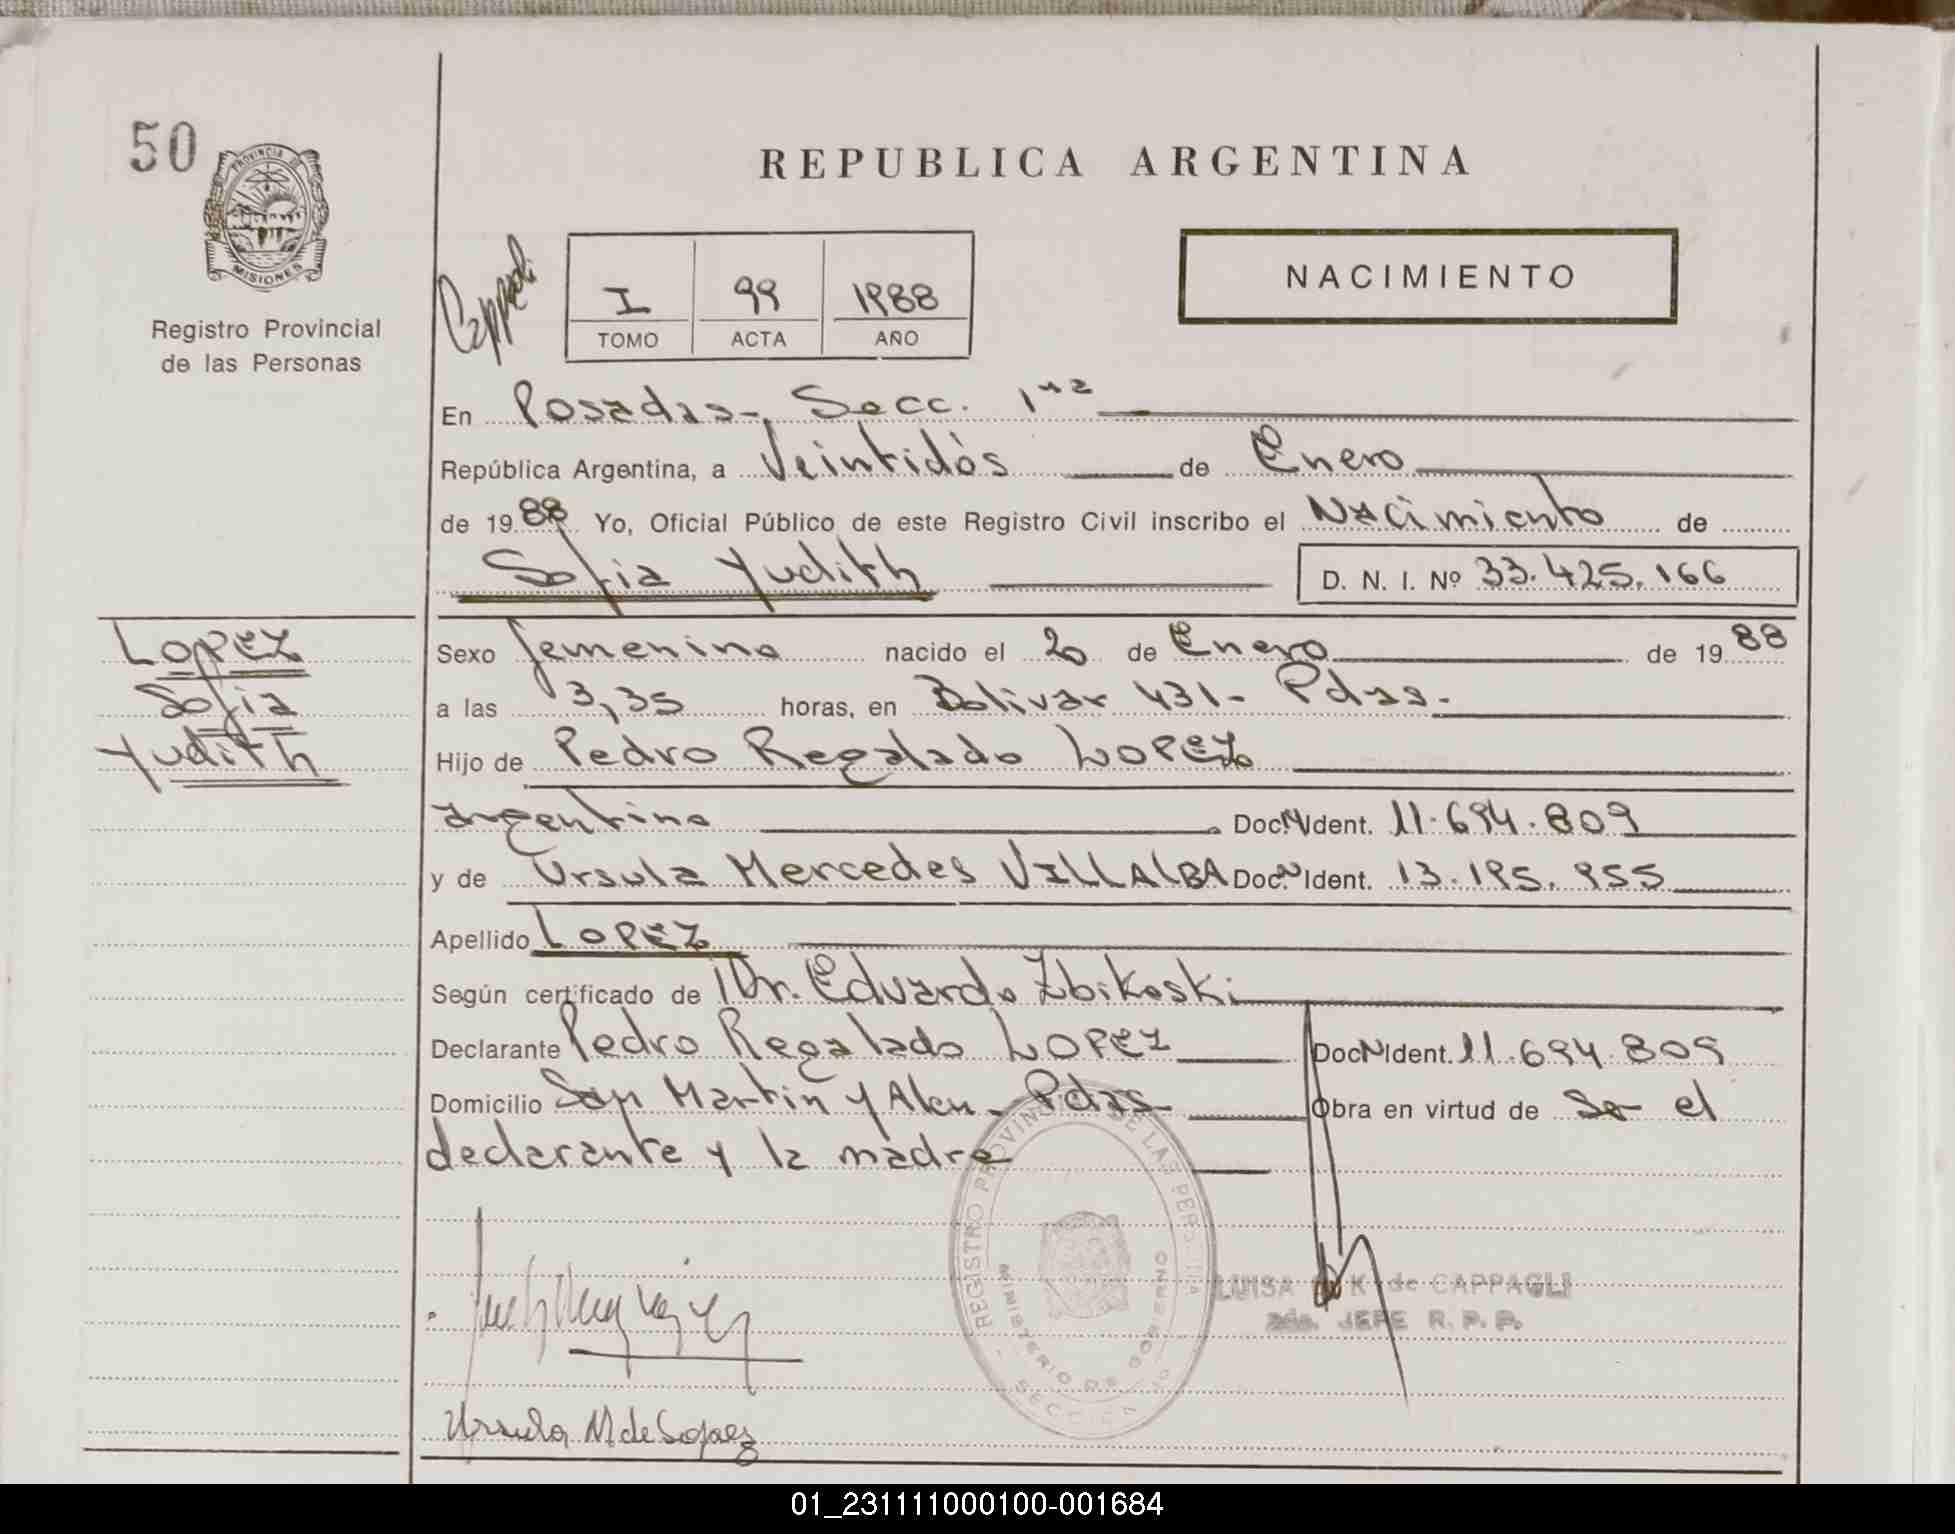 50
PROVINCIA DE
MISIONES
Registro Provincial
de las Personas
REPUBLICA ARGENTINA
Cappagli
I 99 1988
TOMO ACTA AÑO
NACIMIENTO
En Posadas-, Secc. 1ra
República Argentina, a Veintidòs de Enero
de 1988 Yo, Oficial Público de este Registro Civil inscribo el Nacimiento de
Sofia Yudith D. N. I. Nº 33.425.166
Lopez
Sofia
Yudith
Sexo femenino nacido el 20 de Enero de 1988
a las 3,35 horas, en Bolivar 431- Pdas.
Hijo de Pedro Regalado LOPEZ
argentino Doc. N Ident. 11.694.809
y de Ursula Mercedes VILLALBA Doc. N Ident. 13.195.955
Apellido LOPEZ
Según certificado de Dr. Eduardo Zbikoski
Declarante Pedro Regalado LOPEZ Doc N Ident. 11.694.809
Domicilio San Martin y Alem- Pdas- Obra en virtud de ser el
declarante y la madre
REGISTRO PROVINCIAL DE LAS PERSONAS
MINISTERIO DE GOBIERNO
SECCION 1a
LUISA K de CAPPAGLI
JEFE R. P. P.
Ursula M. de Lopez
01_231111000100-001684